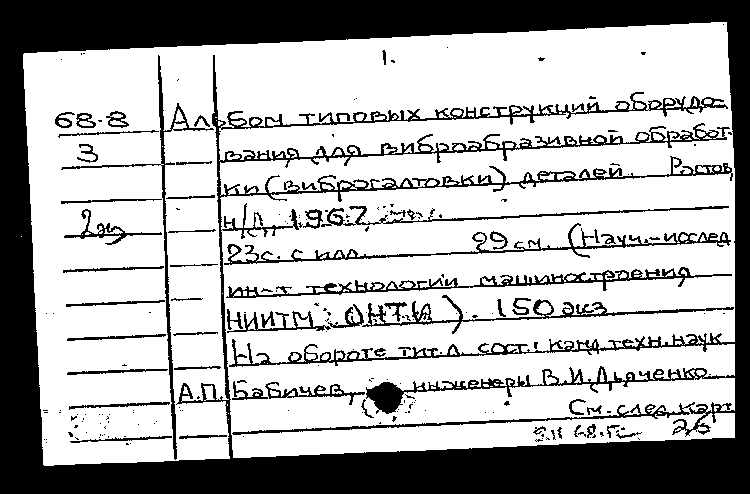 1.
68-8 Альбом типовых конструкций оборудо-
3 вания для виброабразивной обработ-
ки (виброгалтовки) деталей. Ростов
2 экз н/Д, 1967,
23с. с илл. 29 см. (Науч.-исслед
ин-т технологии машиностроения
НИИТМ. ОНТИ). 150 экз
На обороте тит.л. сост.: канд. техн. наук
А.П. Бабичев, инженеры В.И. Дьяченко
См. след. карт
26